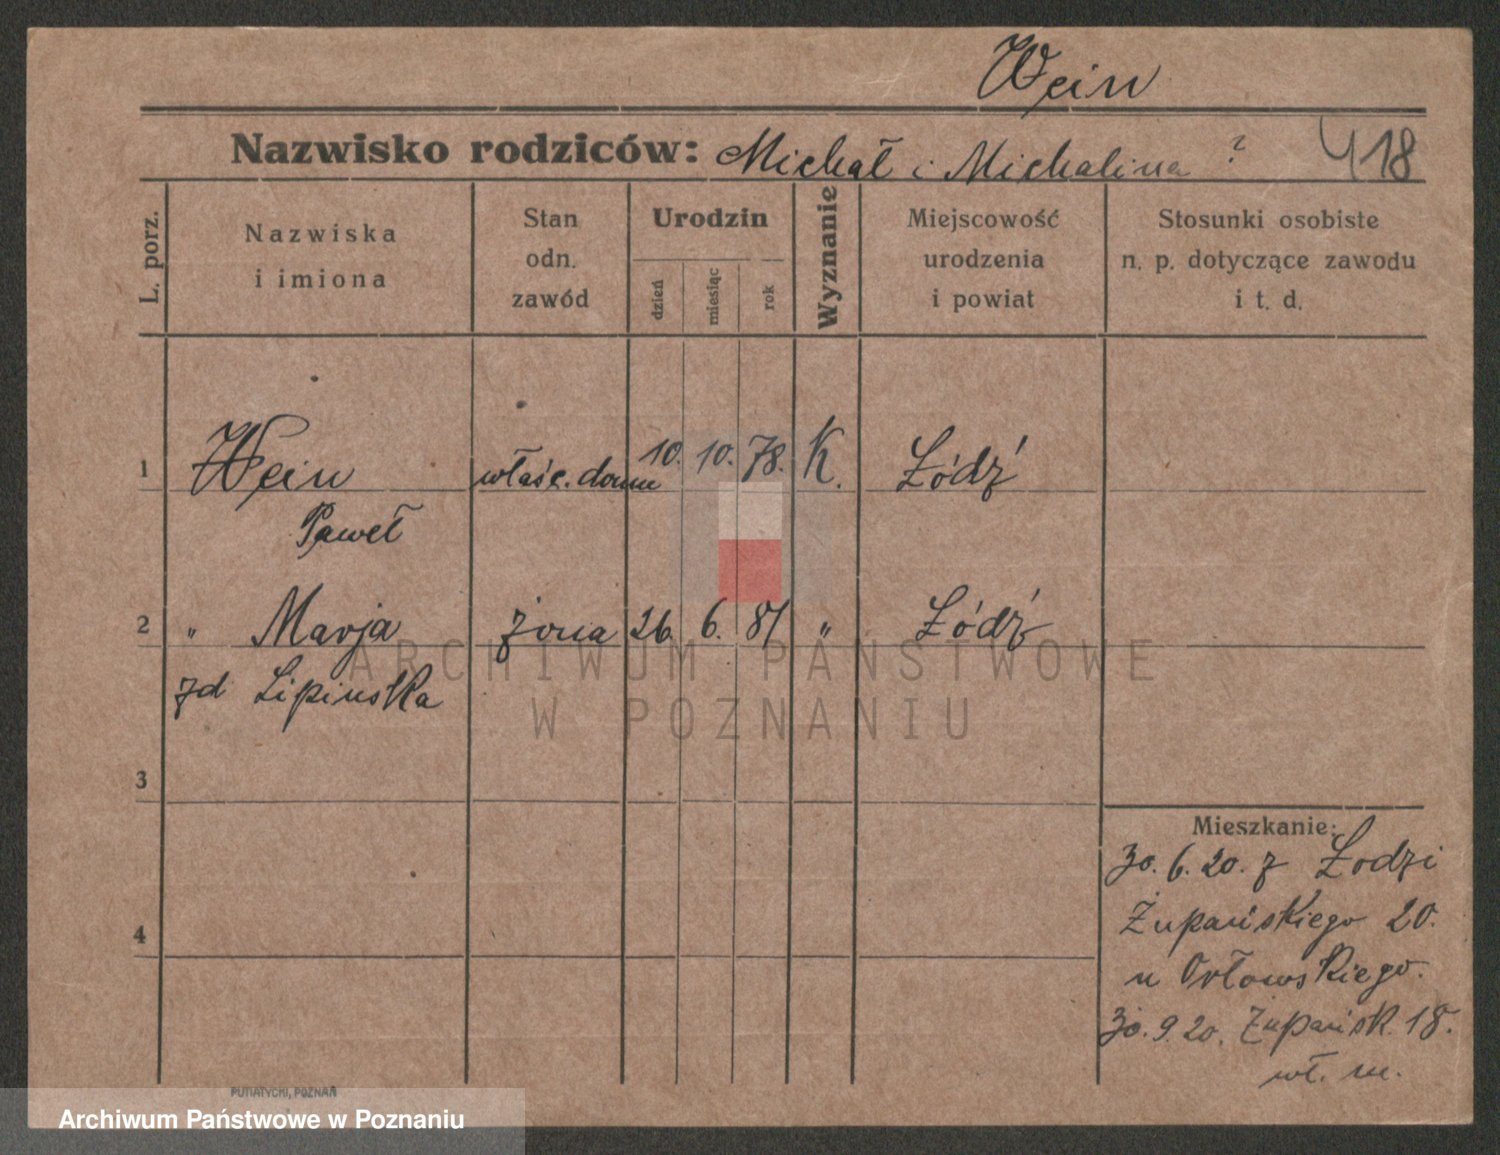 Wein
Nazwisko rodziców: Michał i Michalina ? 418
L. porz.
Nazwiska i imiona
Stan odn. zawód
Urodzin
dzień miesiąc rok
Wyznanie
Miejscowość urodzenia i powiat
Stosunki osobiste n. p. dotyczące zawodu i t. d.
1 Wein właśc. domu 10. 10. 78. K. Łódź
Paweł
2 " Marja żona 26. 6. 81 " Łódź
zd Lipinska
ARCHIWUM PAŃSTWOWE
W POZNANIU
3
4
Mieszkanie:
30. 6. 20. z Łodzi
Żupańskiego 20.
u Orłowskiego.
30. 9. 20. Żupańsk. 18.
wł. m.
PUTIATYCKI, POZNAŃ
Archiwum Państwowe w Poznaniu